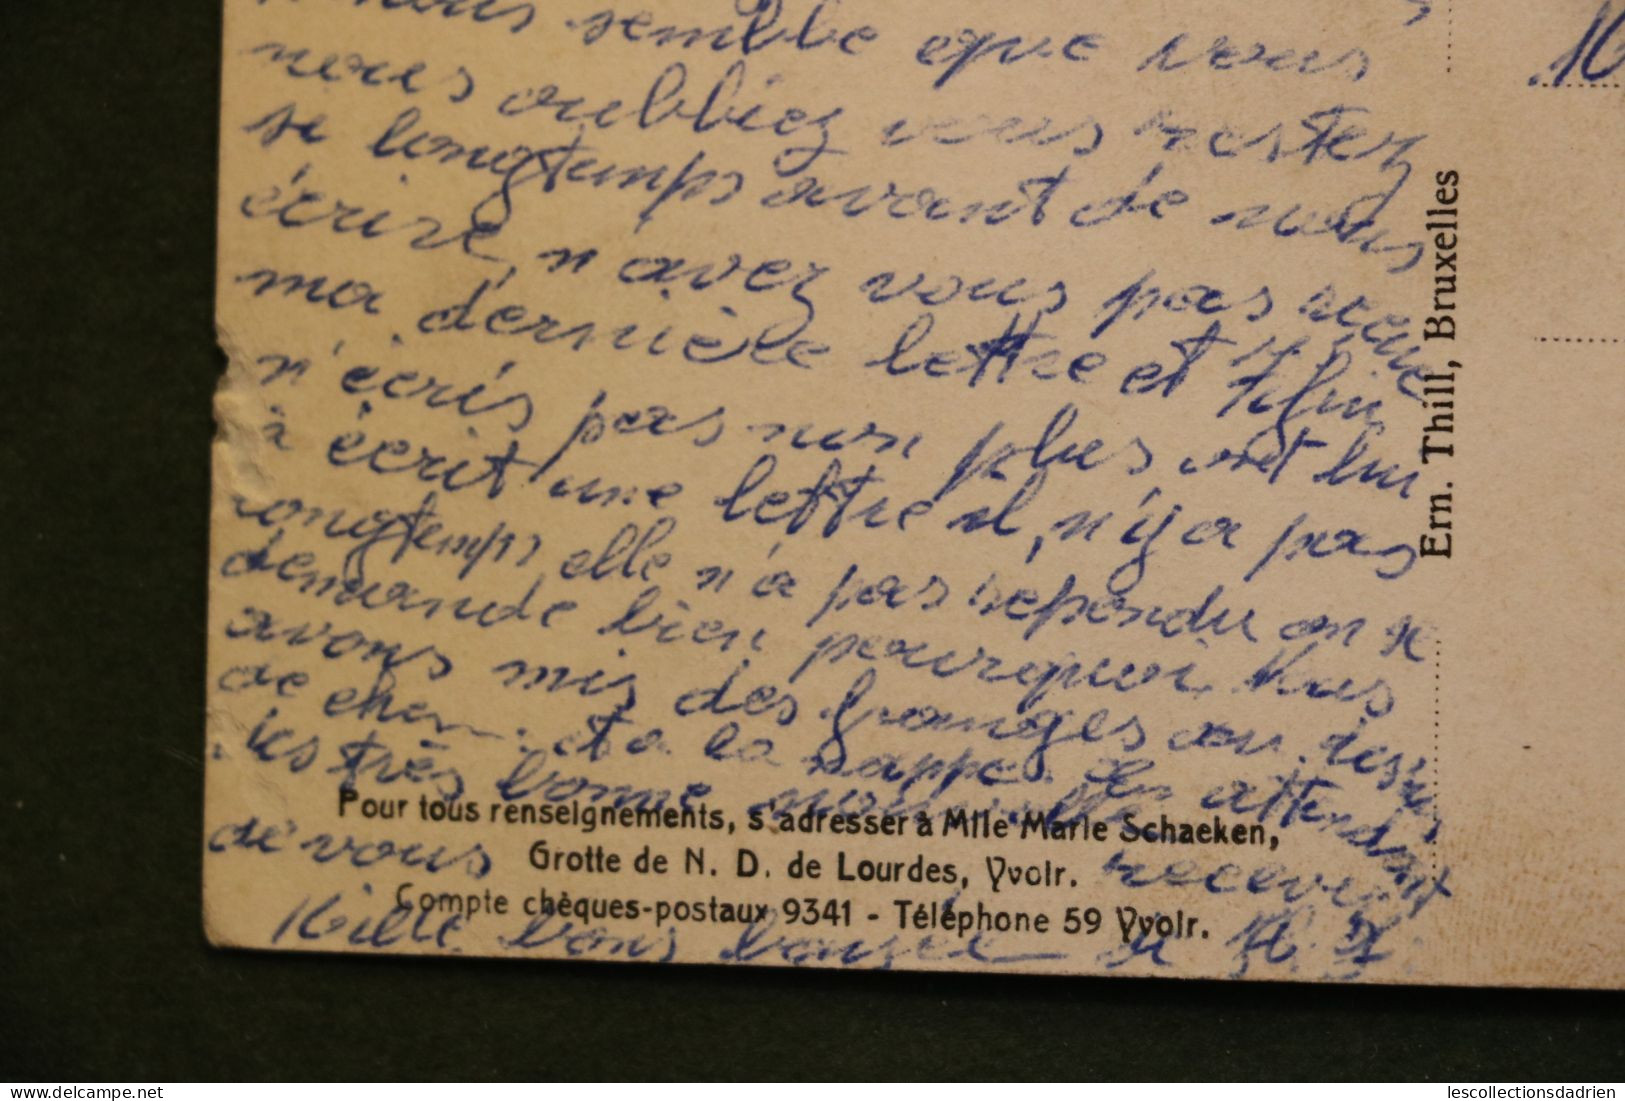 nous semble que vous
nous oubliez vous restez
si longtemps avant de nous
écrire, n'avez vous pas recue
ma dernière lettre et
n'écris pas non plus ont lui
à écrit une lettre il, n'y a pas
longtemps elle n'a pas répondu on se
demande bien pourquoi. Nous
avons mis des franges au dessus
de et a la nappe. En attendant
des très bonne nouvelle
de vous recevez
Mille bons
Pour tous renseignements, s'adresser à Mlle Marie Schaeken,
Grotte de N. D. de Lourdes, Yvoir.
Compte chèques-postaux 9341 - Téléphone 59 Yvoir.
Ern. Thill, Bruxelles
16
lescollectionsdadrien